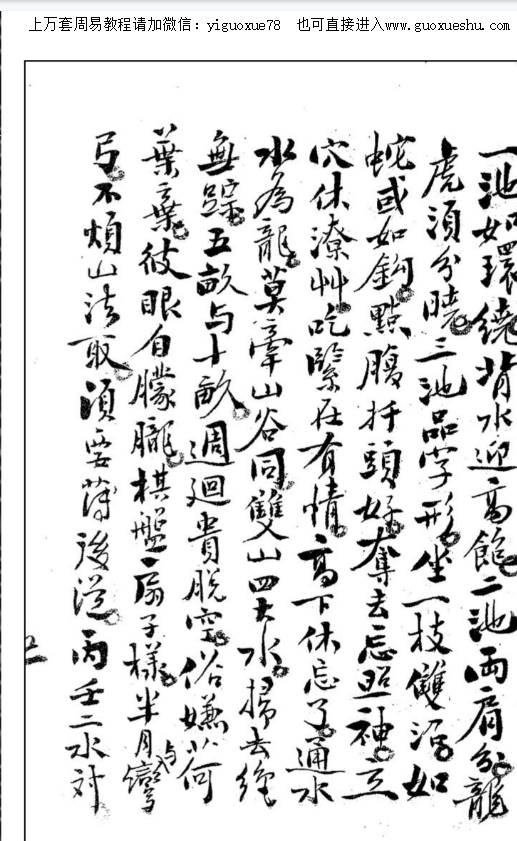 上万套周易教程请加微信：yiguoxue78　也可直接进入www.guoxueshu.com
一池如環繞背水迎高飽二池両肩分龍
虎須分曉三池品字形坐一枝雙活如
蛇或如鈎點腹扦頭好奪去忘照神立
穴休潦艸吃緊在有情高下休忘了通水
水為龍莫牽山谷同雙山四大水掃去
無蹤五畝与十畝週廻貴脱空俗嫌荷
葉棄彼眼自朦朧棋盤扇子樣半月与彎
弓不煩山法取須要薄後從丙壬二水対